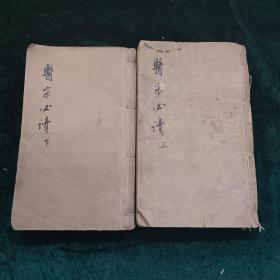 醫宗必讀 上
醫宗必讀 下